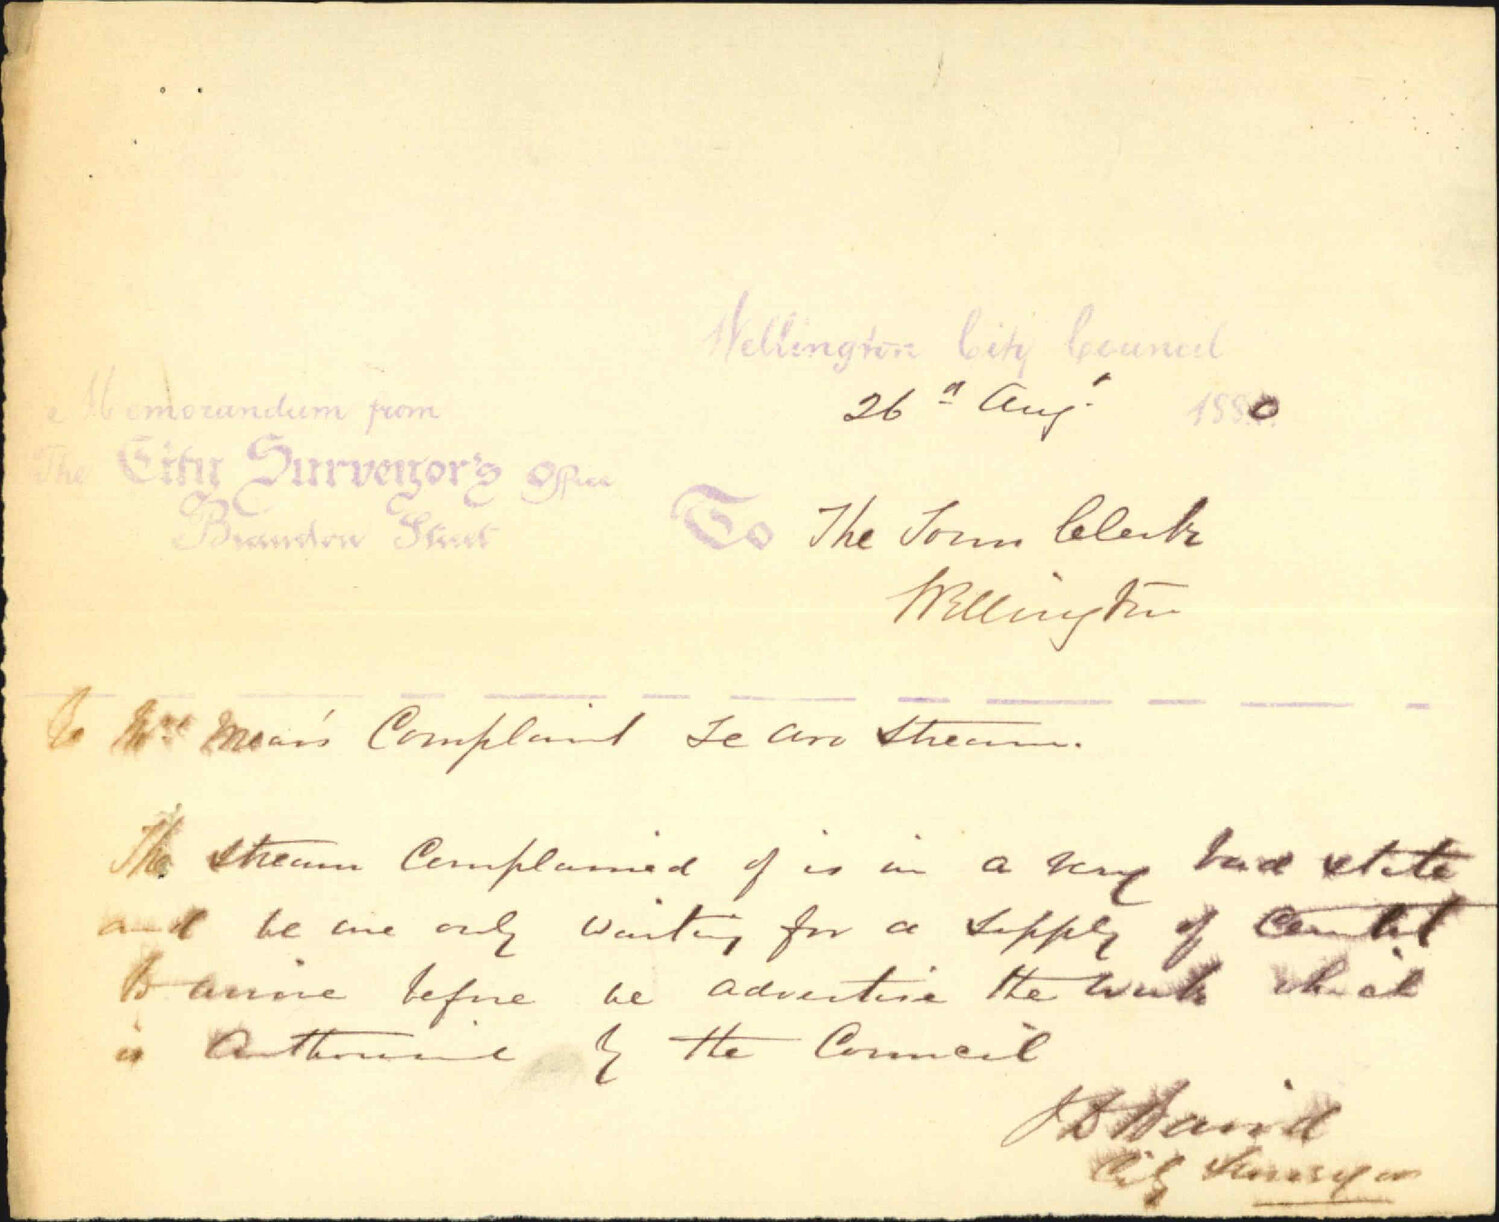 Wellington City Council
26th Augt 1880
Memorandum from
The City Surveyor's Office
Brandon Street
To The Town Clerk
Wellington
Complaint Te Aro Stream.
The Stream Complained of is in a very bad state
and we are only waiting for a supply of Cement
to arrive before we advertise the work which
is Authorised by the Council
J D Baird
City Surveyor